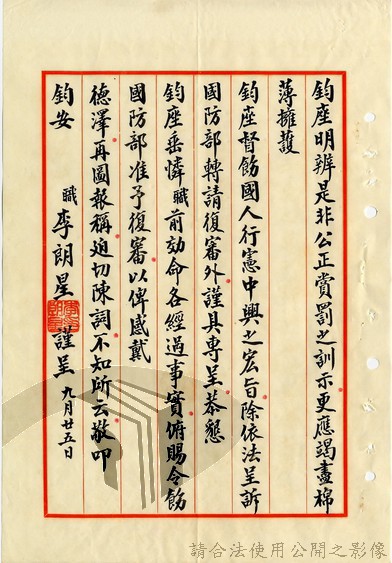 鈞座明辨是非公正賞罰之訓示更應竭盡棉
薄擁護
鈞座督飭國人行憲中興之宏旨除依法呈訴
國防部轉請復審外謹具專呈恭懇
鈞座垂憐職前効命各經過事實俯賜令飭
國防部准予復審以俾感戴
德澤再圖報稱迫切陳詞不知所云敬叩
鈞安
職李朗星謹呈九月廿五日
請合法使用公開之影像